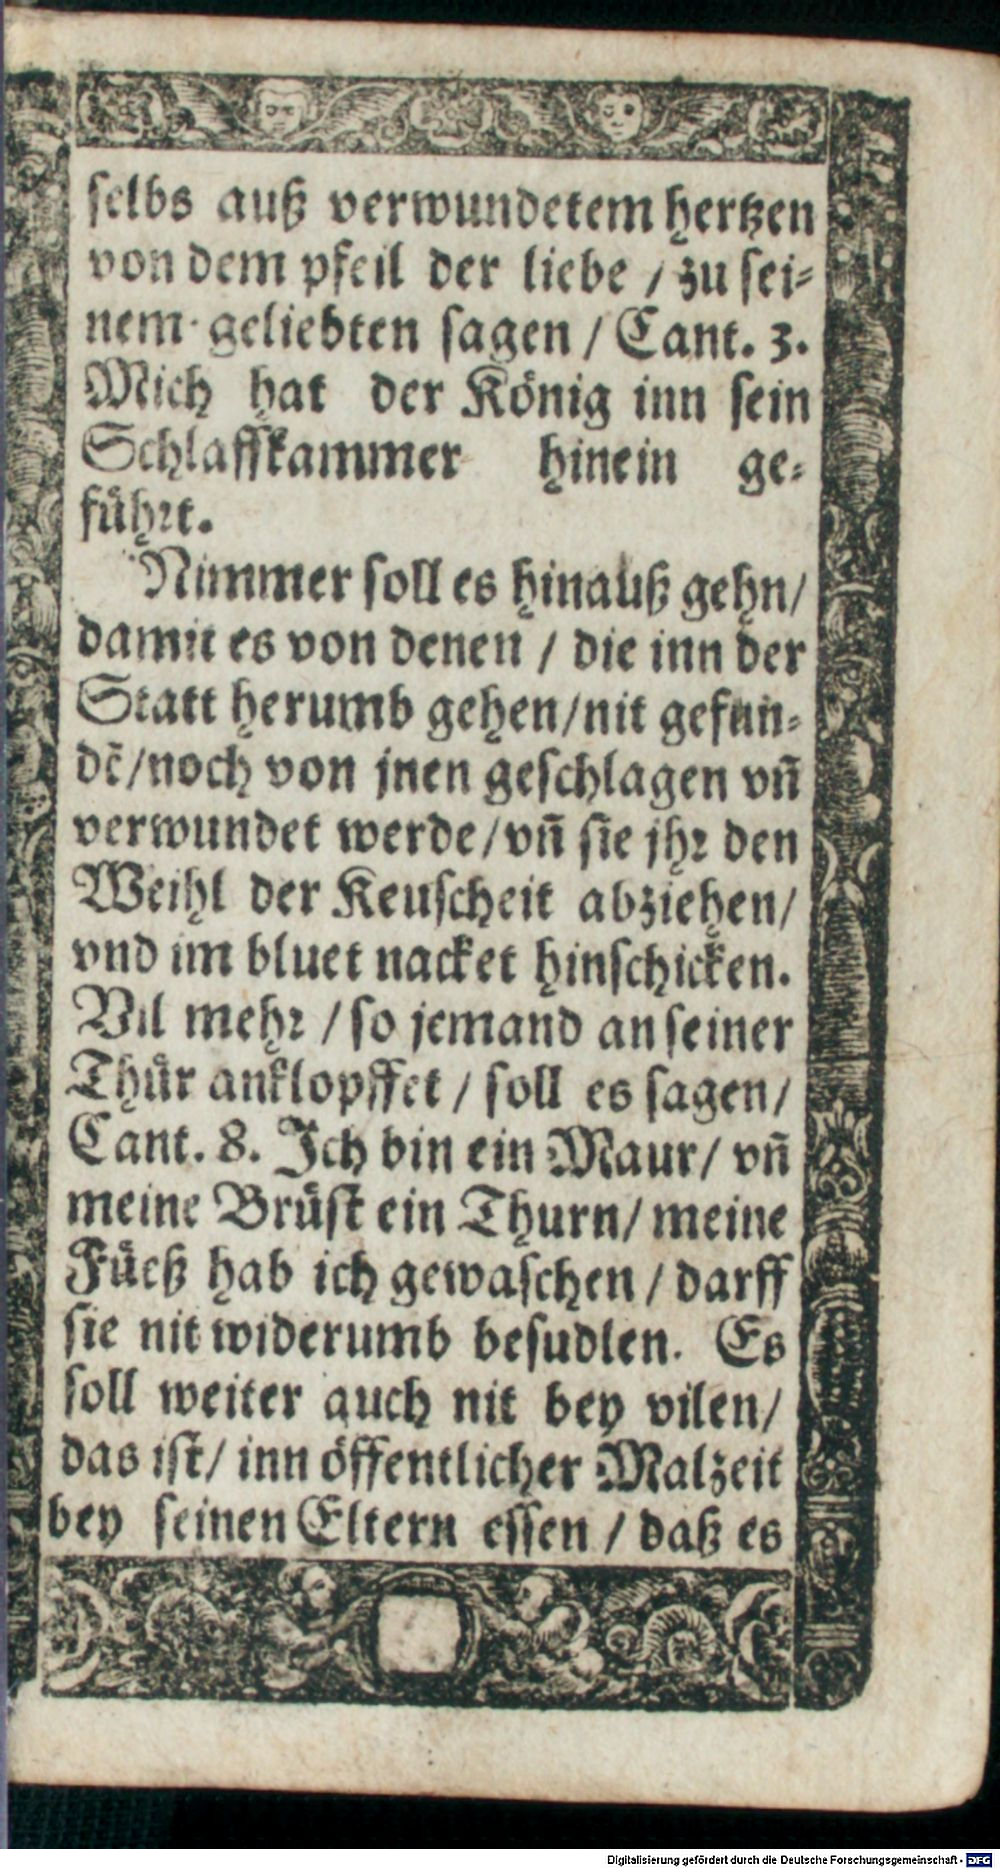 selbs auß verwundetem hertzen
von dem pfeil der liebe / zu sei⸗
nem geliebten sagen / Cant. 3.
Mich hat der König inn sein
Schlaffkammer hinein ge⸗
führt.
Nimmer soll es hinauß gehn/
damit es von denen / die inn der
Statt herumb gehen/nit gefun⸗
dē/noch von jnen geschlagen vñ
verwundet werde/vñ sie jhr den
Weihl der Keuscheit abziehen/
vnd im bluet nacket hinschicken.
Vil mehr / so jemand an seiner
Thür anklopffet / soll es sagen/
Cant. 8. Ich bin ein Maur/ vñ
meine Brüst ein Thurn/ meine
Füeß hab ich gewaschen / darff
sie nit widerumb besudlen. Es
soll weiter auch nit bey vilen/
das ist/ inn öffentlicher Malzeit
bey seinen Eltern essen / daß es
Digitalisierung gefördert durch die Deutsche Forschungsgemeinschaft - DFG